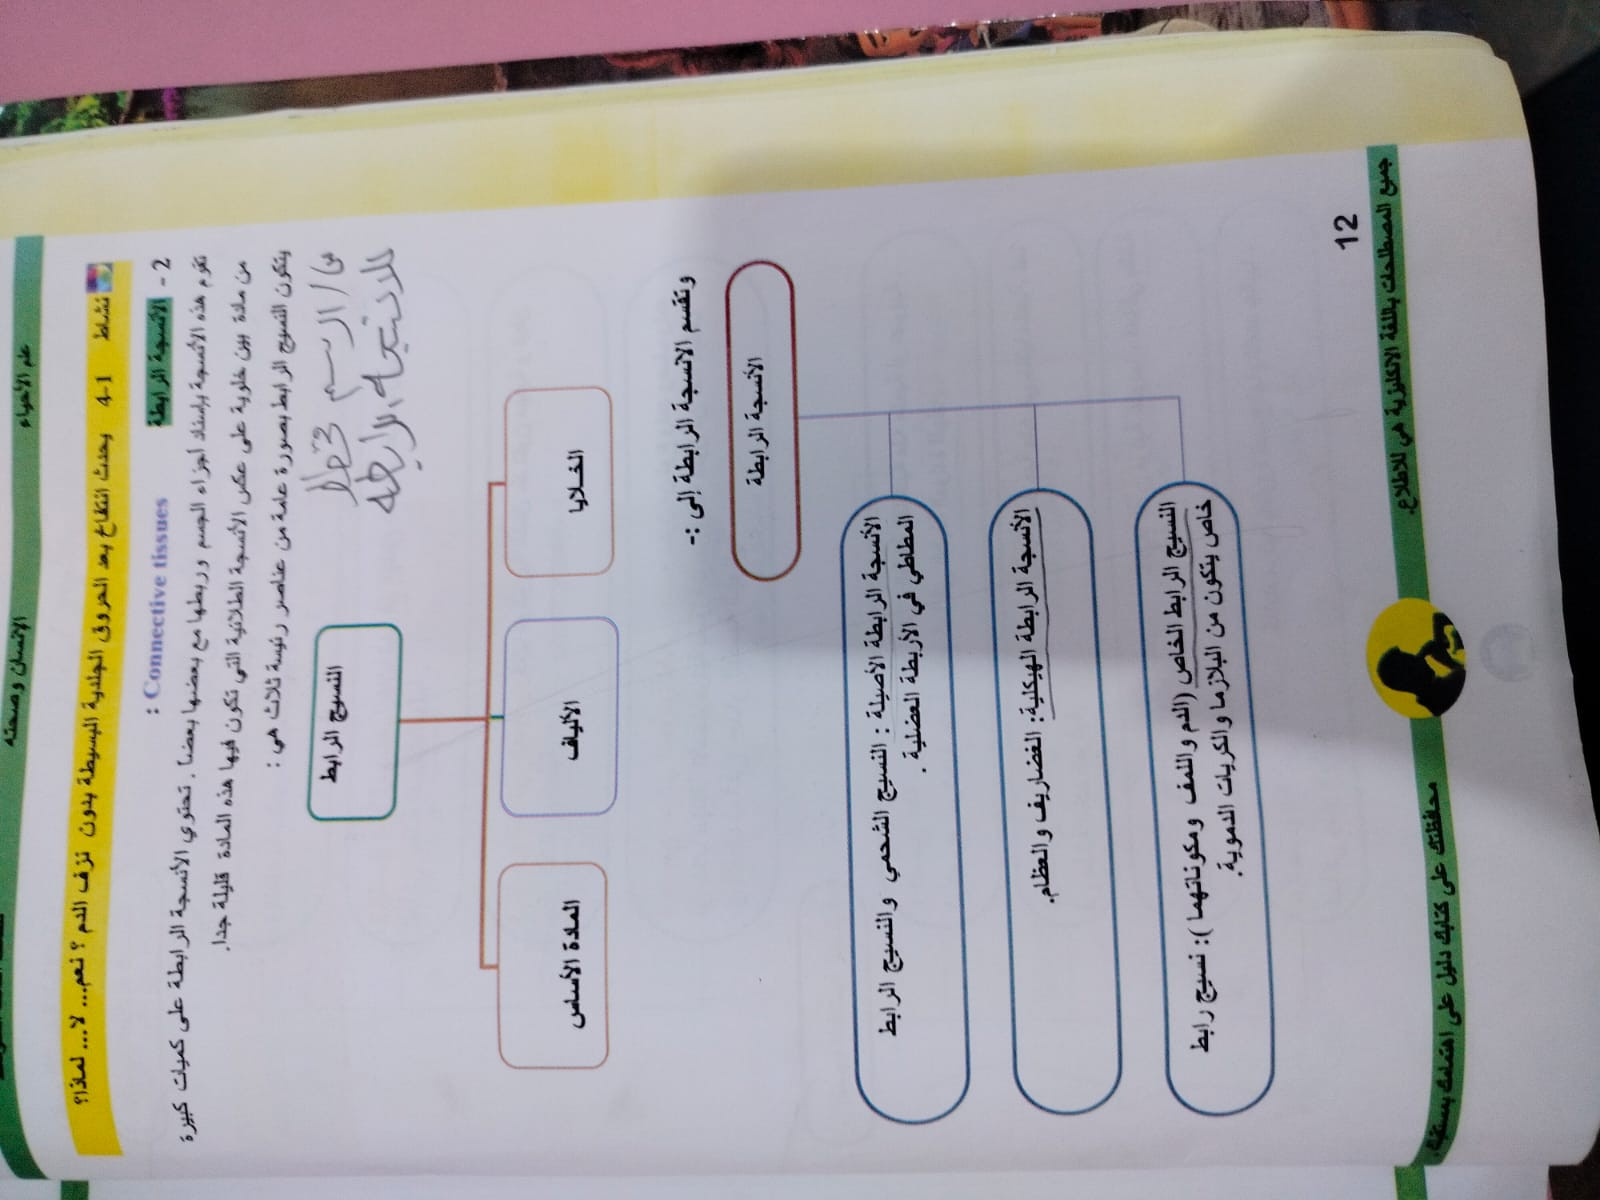 علم الأحياء
الإنسان وصحته
نشاط 1-4 يحدث انتفاخ بعد الحروق الجلدية البسيطة بدون نزف الدم ؟ نعم... لا... لماذا؟
2 - الأنسجة الرابطة Connective tissues :
تقوم هذه الأنسجة بإسناد اجزاء الجسم وربطها مع بعضها بعضاً. تحتوي الأنسجة الرابطة على كميات كبيرة
من مادة بين خلوية على عكس الأنسجة الطلائية التي تكون فيها هذه المادة قليلة جدا.
يتكون النسيج الرابط بصورة عامة من عناصر رئيسة ثلاث هي :
س/ ارسم مخطط
للانسجة الرابطة
النسيج الرابط
الخلايا
الألياف
المادة الأساس
وتقسم الانسجة الرابطة إلى :-
الأنسجة الرابطة
الأنسجة الرابطة الأصيلة : النسيج الشحمي والنسيج الرابط
المطاطي في الأربطة العضلية .
الأنسجة الرابطة الهيكلية: الغضاريف والعظام.
النسيج الرابط الخاص (الدم واللمف ومكوناتهما ): نسيج رابط
خاص يتكون من البلازما والكريات الدموية.
12
جميع المصطلحات باللغة الانكليزية هي للاطلاع.
محافظتك على كتابك دليل على اهتمامك بمستقبلك.